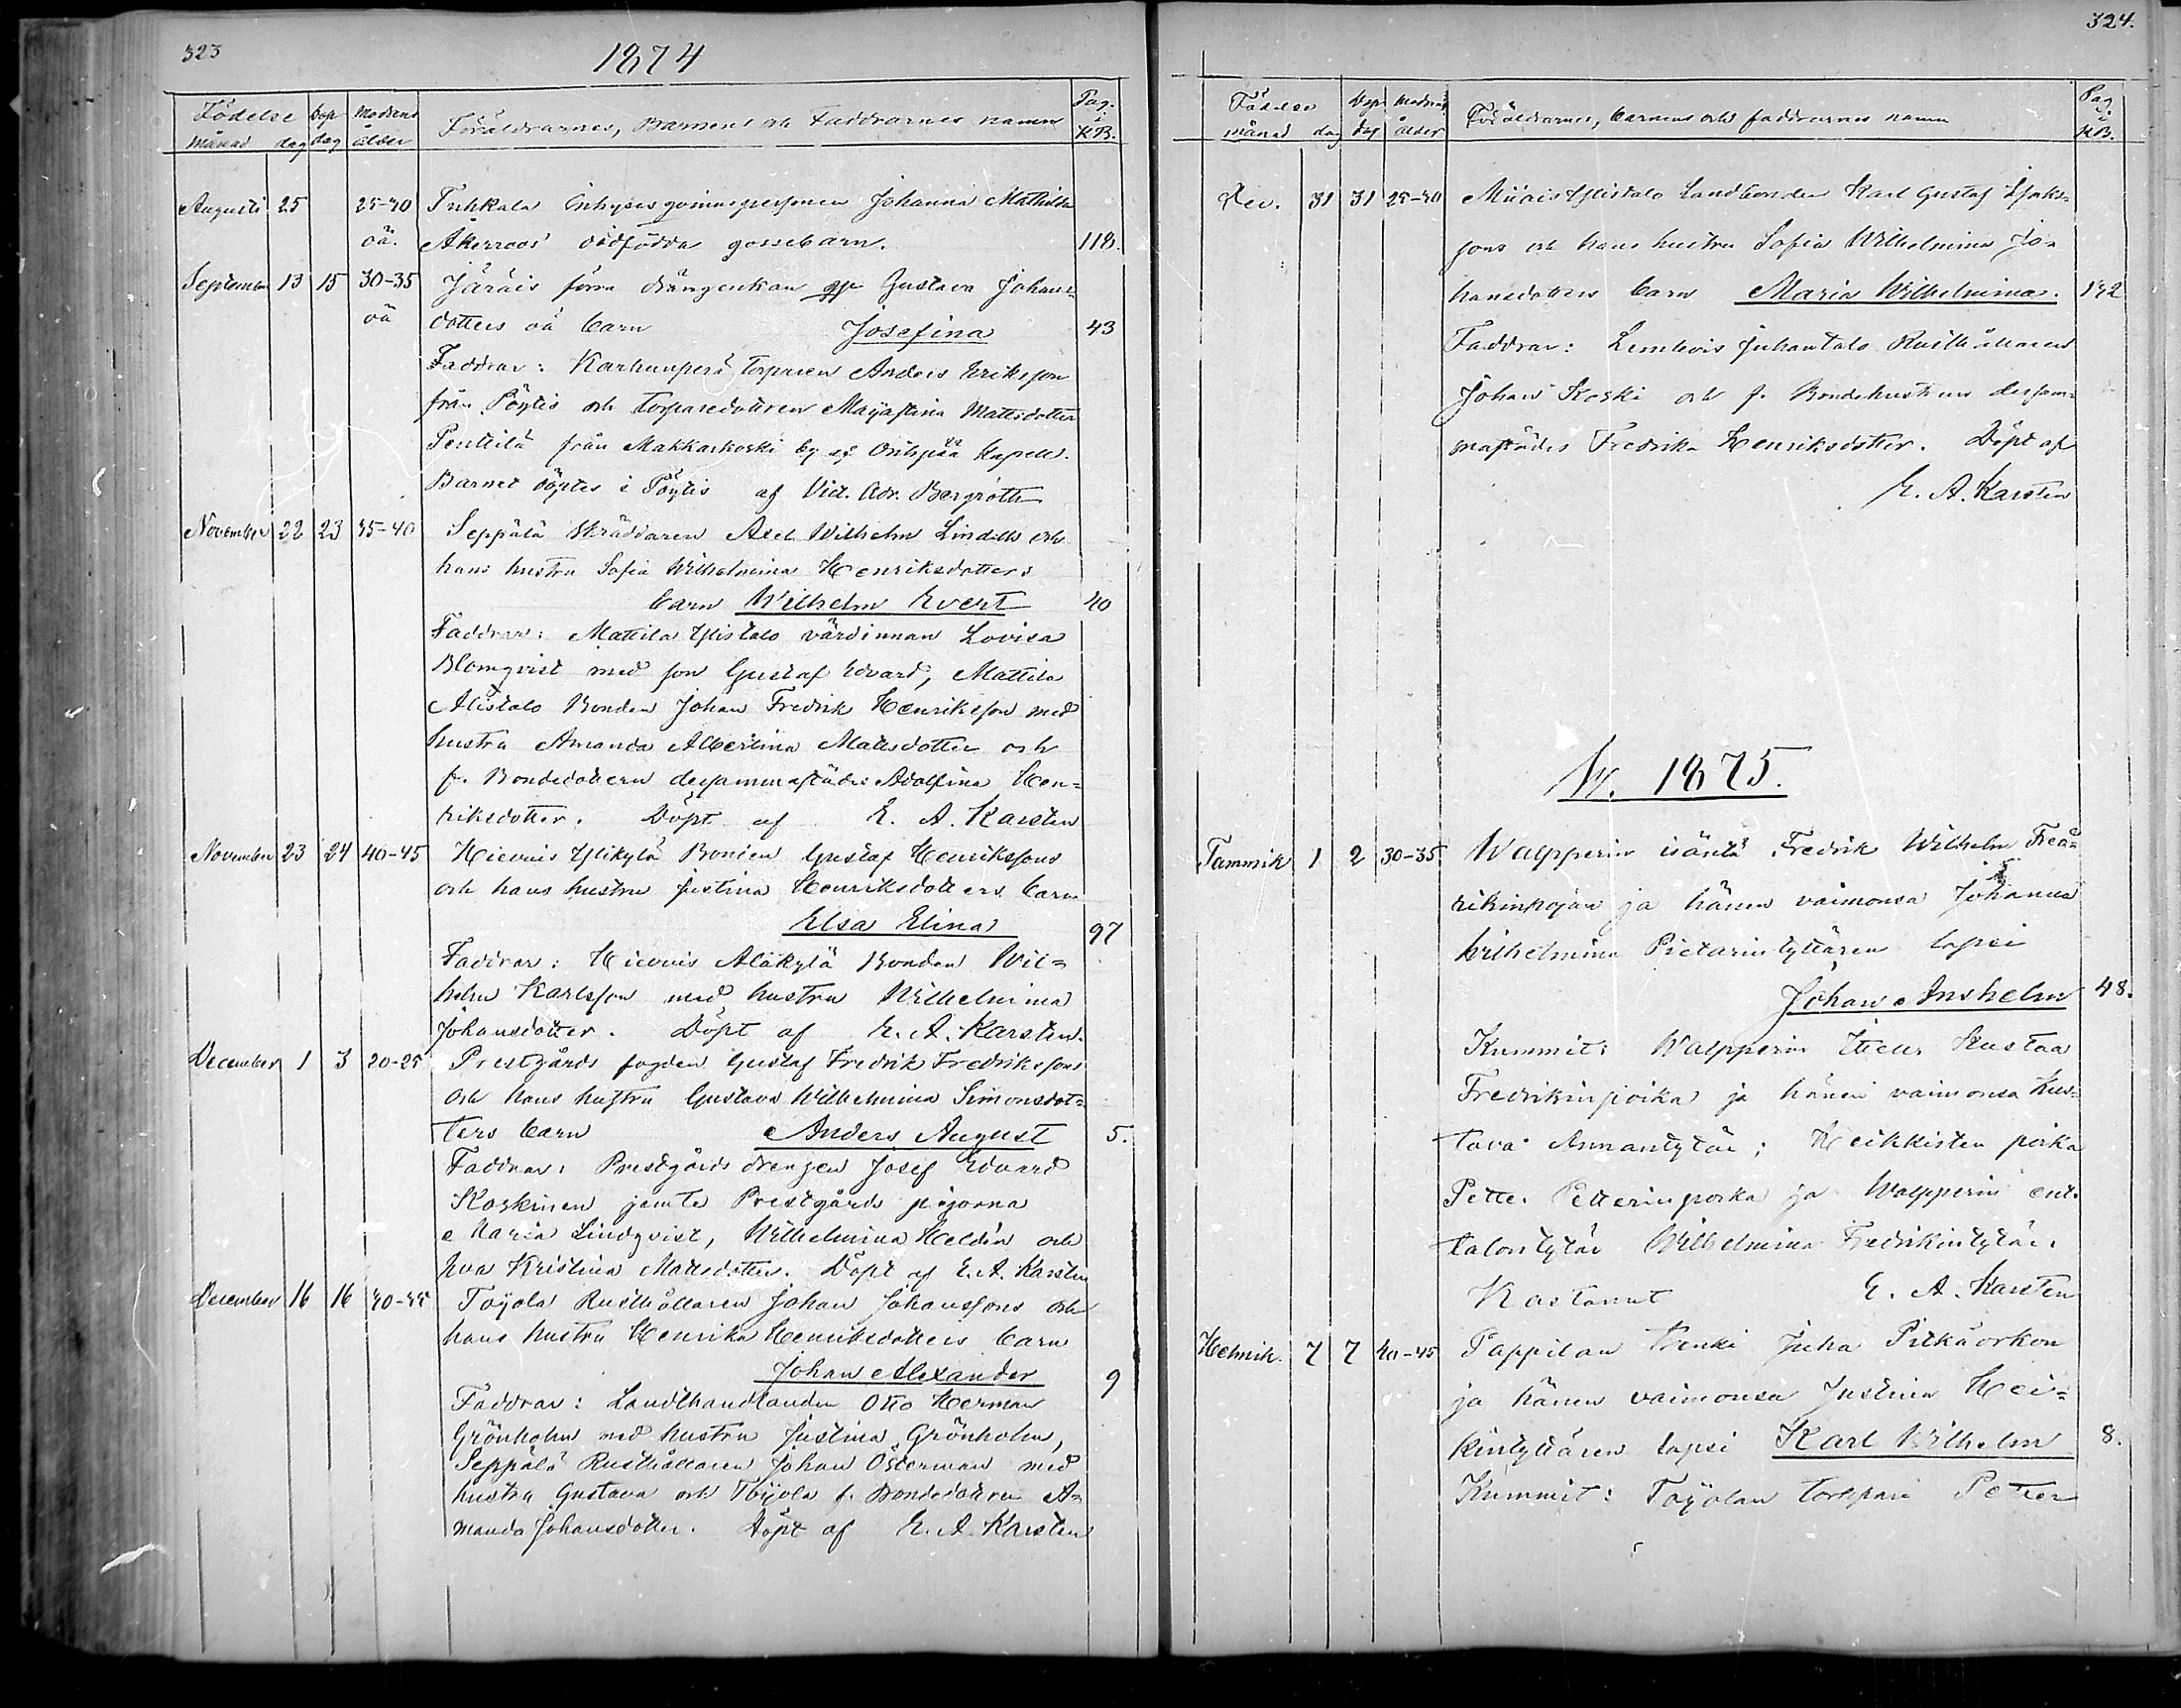 323
1874
Födelse
månad dag
Dop
dag
Modrens
ålder
Föräldrarnes, Barnens och Faddrarnes namn
Pag.
i
K.B.
Augusti 25 25-30 Tuhkala Inhyses qvinnspersonen Johanna Mathilda
oä. Åkerroos' dödfödda gossebarn. 118.
September 13 15 30-35 Järäis förra drängenkan Gustava Johans-
oä dotters oä barn Josefina 43
Faddrar: Karhunperä Torparen Anders Eriksson
från Pöytis och Torparedottren Majastina Mattsdotter
Penttilä från Makkarkoski by af Oripää Kapell.
Barnet döptes i Pöytis af Vict. Adr. Bergroth
November 22 23 35-40 Seppälä Skräddaren Axel Wilhelm Lindells och
hans hustru Sofia Wilhelmina Henriksdotters
barn Wilhelm Evert 40
Faddrar: Mattila Ylistalo värdinnan Lovisa
Blomqvist med son Gustaf Edvard, Mattila
Alistalo Bonden Johan Fredrik Henriksson med
hustru Amanda Albertina Mattsdotter och
f. Bondedottern dersammastädes Adolfina Hen-
riksdotter. Döpt af E. A. Karsten
November 23 24 40-45 Hievois Ylikylä Bonden Gustaf Henrikssons
och hans hustru Justina Henriksdotters barn
Elsa Elina 97
Faddrar: Hievois Alakylä Bonden Wil-
helm Karlsson med hustru Wilhelmina
Johansdotter. Döpt af E. A. Karsten.
December 1 3 20-25 Prestgårds fogden Gustaf Fredrik Fredrikssons
och hans hustru Gustava Wilhelmina Simonsdot-
ters barn Anders August 5.
Faddrar: Prestgårds drengen Josef Edvard
Koskinen jemte Prestgårds pigorna
Maria Lindqvist, Wilhelmina Heldén och
Eva Kristina Mattsdotter. Döpt af E. A. Karsten
December 16 16 40-45 Toijola Rusthållaren Johan Johanssons och
hans hustru Henrika Henriksdotters barn
Johan Alexander 9
Faddrar: Landthandlanden Otto Herman
Grönholm med hustru Justina Grönholm,
Seppälä Rusthållaren Johan Österman med
hustru Gustava och Toijola f. Bondedottren A-
manda Johansdotter. Döpt af E. A. Karsten
324.
Födelse
månad dag
Dop
dag
Modrens
ålder
Föräldrarnes, barnens och faddrarnes namn
Pag
i
K.B.
Dec. 31 31 25-30 Miiois Ylistalo Landbonden Karl Gustaf Isaks-
sons och hans hustru Sofia Wilhelmina Jo-
hansdotters barn Maria Wilhelmina. 132
Faddrar: Lemlevis Juhantalo Rusthållaren
Johan Koski och f. Bondehustrun dersam-
mastädes Fredrika Henriksdotter. Döpt af
E. A. Karsten
W. 1875.
Tammik 1 2 30-35 Walpperin isäntä Fredrik Wilhelm Fred-
rikinpojan ja hänen vaimonsa Johanna
Wilhelmina Pietarintyttären lapsi
Johan Anshelm 48.
Kummit: Walpperin Kustaa
Fredrikinpoika ja hänen vaimonsa Kus-
tava Annantytär; Heikkisten poika
Petter Petterinpoika ja Walpperin ent.
talontytär Wilhelmina Fredrikintytär.
Kastanut E. A. Karsten
Helmik. 7 7 40-45 Pappilan Trenki Juha Pitkäorkon
ja hänen vaimonsa Justina Hei-
kintyttären lapsi Karl Wilhelm 8.
Kummit: Toijolan torppari Petter